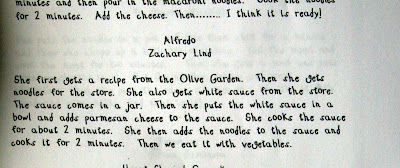 minutes and then pour in the macaroni noodles. Cook the noodles
for 2 minutes. Add the cheese. Then........ I think it is ready!
Alfredo
Zachary Lind
She first gets a recipe from the Olive Garden. Then she gets
noodles for the store. She also gets white sauce from the store.
The sauce comes in a jar. Then she puts the white sauce in a
bowl and adds parmesan cheese to the sauce. She cooks the sauce
for about 2 minutes. She then adds the noodles to the sauce and
cooks it for 2 minutes. Then we eat it with vegetables.